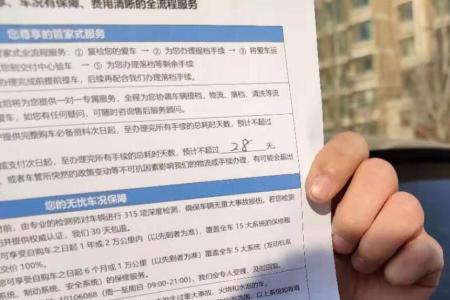 、车况有保障、费用清晰的全流程服务
您尊享的管家式服务
家式全流程服务：① 复检您的爱车 → ② 为您办理提档手续 → ③ 将爱车运
您到交付中心验车 → ⑤ 为您办理落档等剩余手续
办理完成前提前提车，后续再配合我们办理落档手续。
后将为您提供一对一专属服务，全程为您协调车辆提档、物流、落档、清洗等流
车，如您有任何疑问，可随时咨询售后服务顾问。
提供完整购车必备资料次日起，至办理完所有手续的总耗时天数，预计不超过
或支付次日起，至办理完所有手续的总耗时天数，预计不超过 28 天。
或者车管所突然的政策变动等不可抗因素影响我们的物流或手续办理，有可能会超出
您的无忧车况保障
前，由专业的检测师对车辆进行 315 项深度检测，确保车辆无重大事故损伤。若您检测
并提供权威认证，我们 30 天包退。
可享受自购车之日起 1 年或 2 万公里内（以先到者为准），覆盖全车 15 大系统的保修服
交价 100%。
可享受自购车之日起 6 个月或 1 万公里（以先到者为准），覆盖全车 5 大系统（发动机系
系统、制动系统、安全系统）的保修服务。
10106088（周一至周日 09:00-21:00），我们会专人受理，及时回复。
发生过重大事故、火烧和水泡的车。